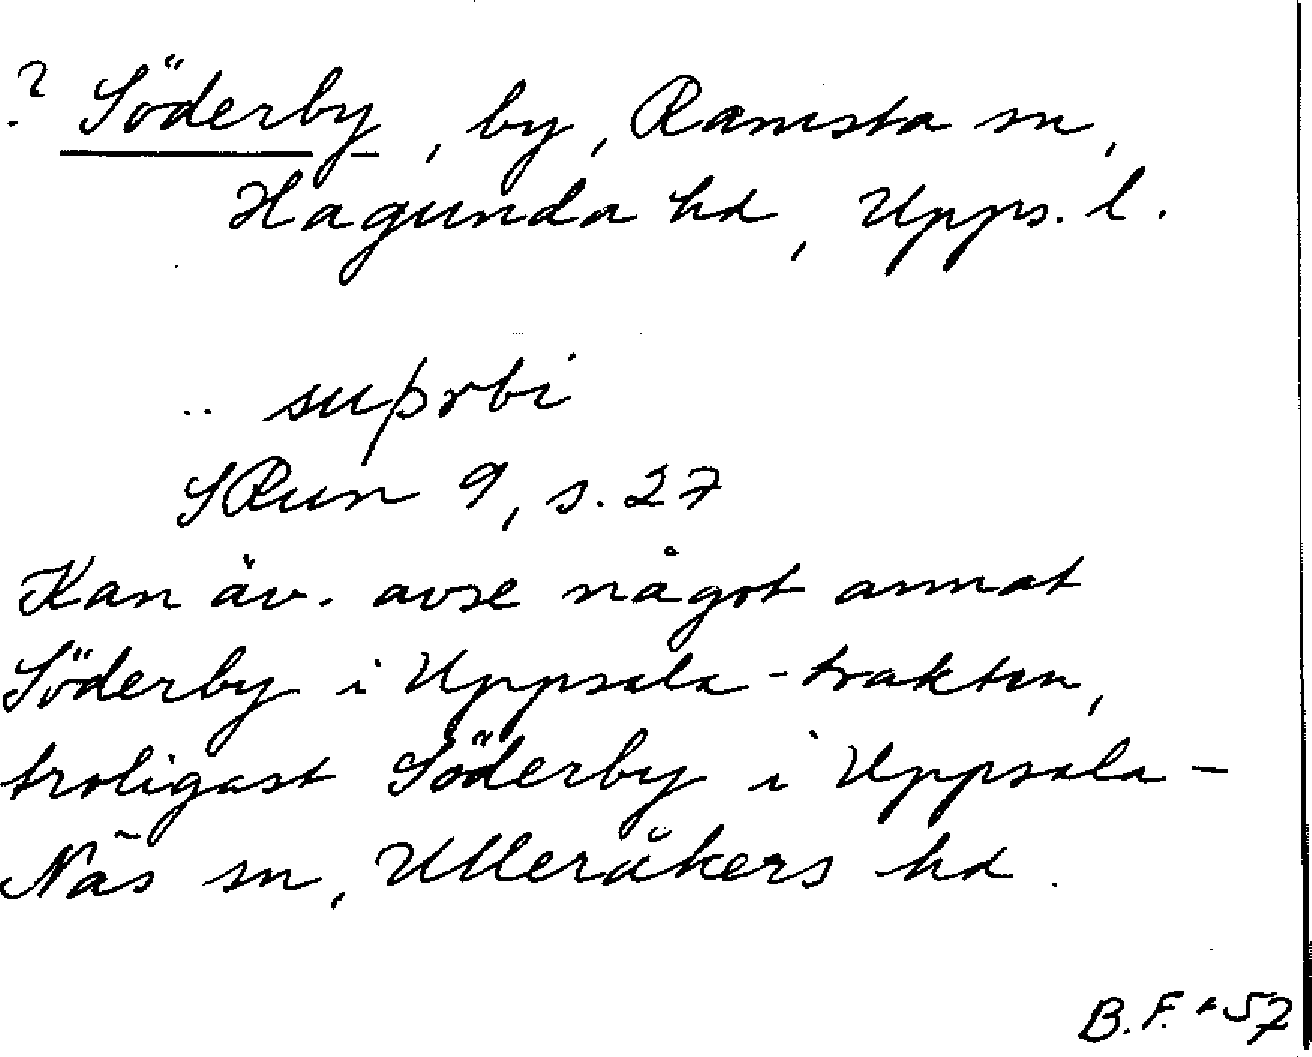 ? Söderby, by, Ramsta sn,
Hagunda hd, Upps. l.
.. suþrbi
SRun 9, s. 27
Kan äv. avse något annat
Söderby i Uppsala-trakten,
troligast Söderby i Uppsala-
Näs sn, Ulleråkers hd.
B.F. '57